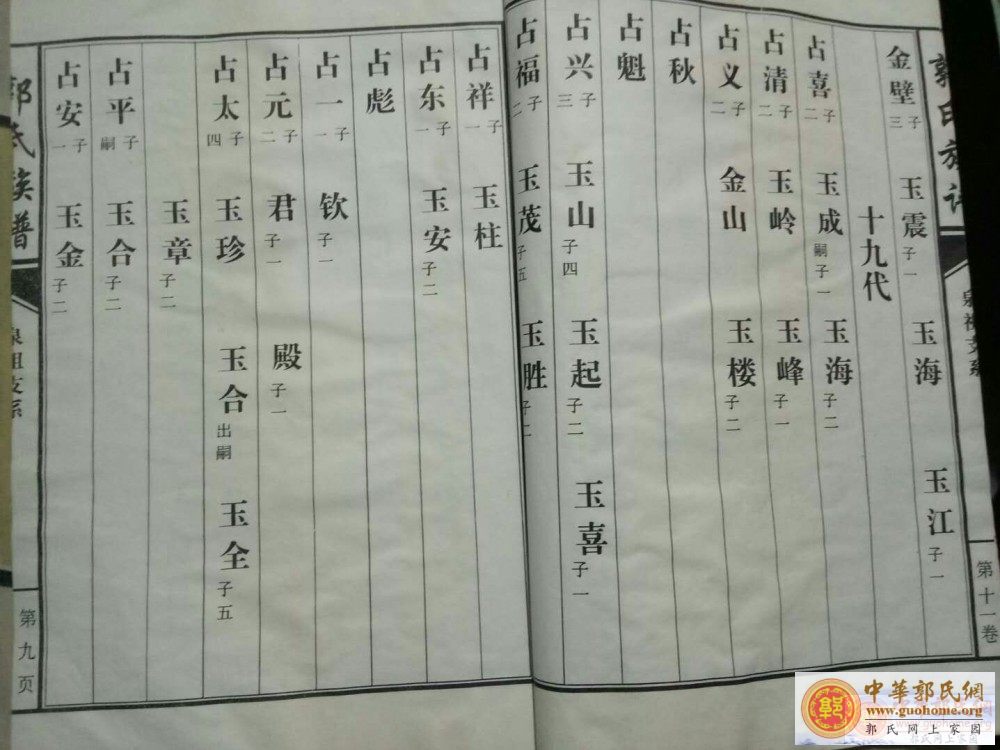 郭氏族谱 泉祖支系 第十一卷
金壁 子三 玉震 子一 玉海 玉江 子一
十九代
占喜 子二 玉成 嗣子一 玉海 子二
占清 子二 玉岭 玉峰 子一
占义 子二 金山 玉楼 子二
占秋
占魁
占兴 子三 玉山 子四 玉起 子二 玉喜 子一
占福 子二 玉茂 子五 玉胜 子二
占祥 子一 玉柱
占东 子一 玉安 子二
占彪
占一 子一 钦 子一
占元 子二 君 子一 殿 子一
占太 子四 玉珍 玉合 出嗣 玉全 子五
玉章 子二
占平 嗣子 玉合 子二
占安 子一 玉金 子二
郭氏族谱 泉祖支系 第九页
中華郭氏網
www.guohome.org
郭氏网上家园